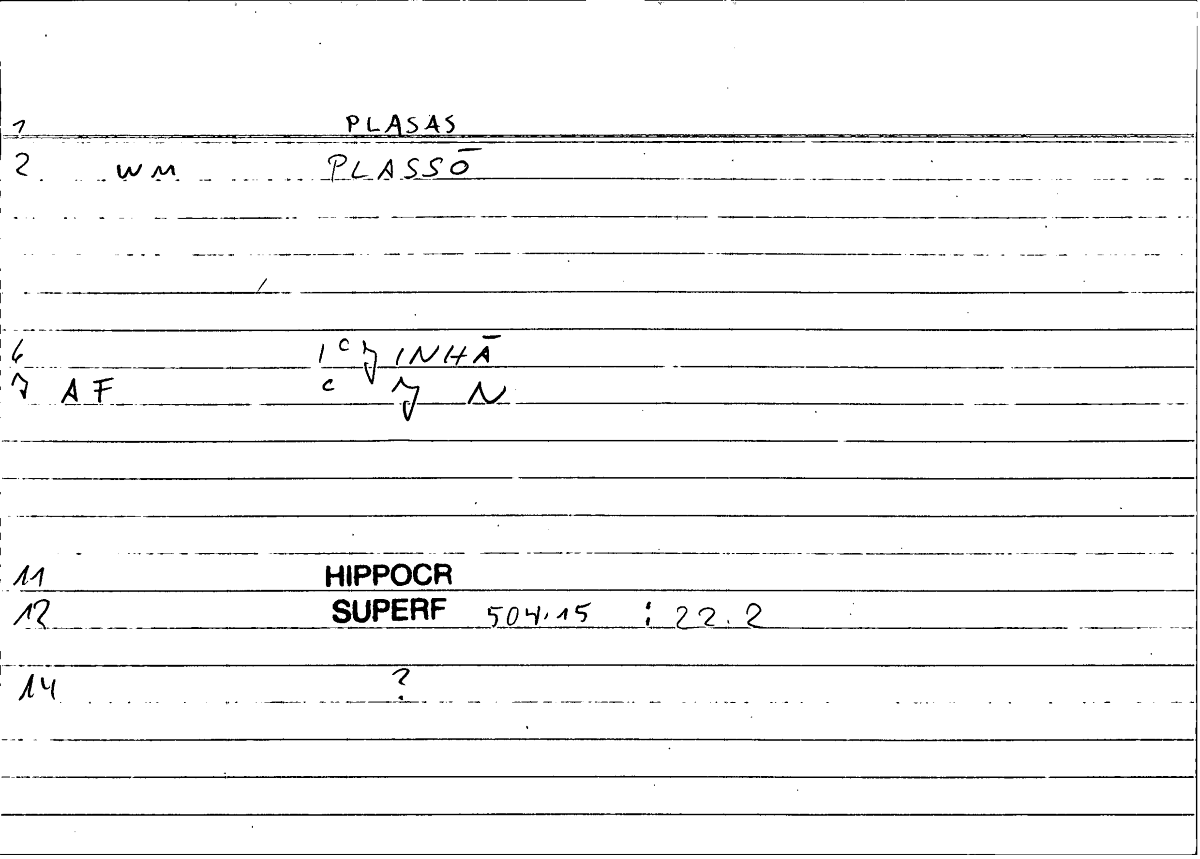 1 PLASAS
2 WM PLASSŌ
6 INHĀ
7 AF C N
11 HIPPOCR
12 SUPERF 504.15 : 22.2
14 ?